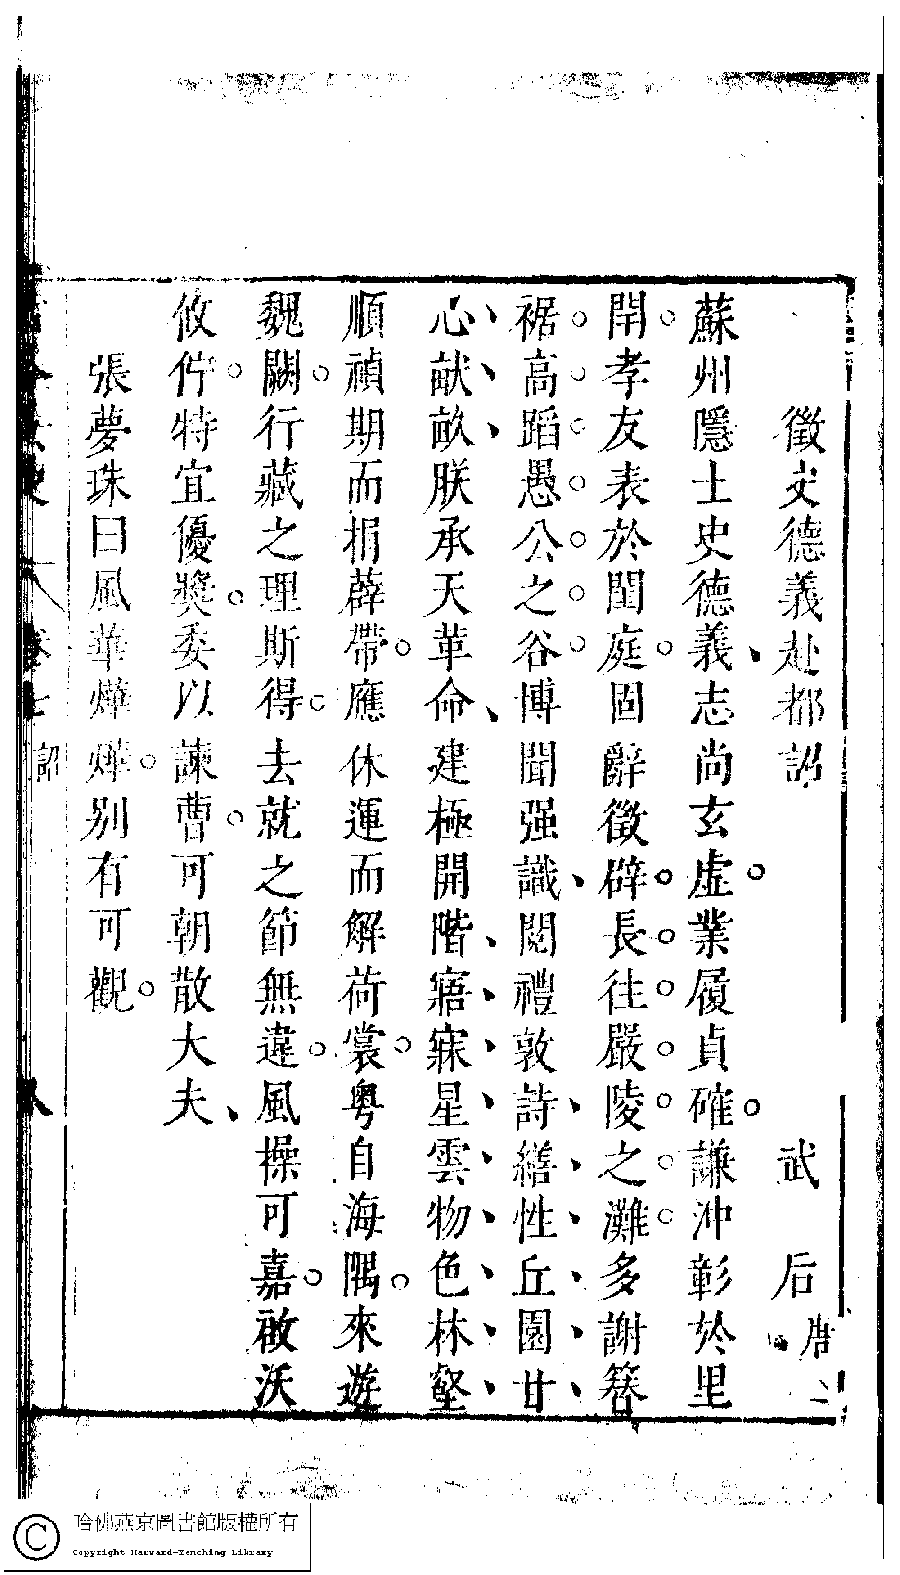 徵史德義赴都詔
武后唐
蘇州隱士史德義志尚玄虛業履貞確謙沖彰於里
閈孝友表於閨庭固辭徵辟長往嚴陵之灘多謝簪
裾高蹈愚公之谷博聞强識閱禮敦詩繕性丘園甘
心畎畝朕承天革命建極開階寤寐星雲物色林壑
順禎期而捐薜帶應休運而解荷裳粵自海隅來遊
魏闕行藏之理斯得去就之節無違風操可嘉啟沃
攸佇特宜優獎委以諫曹可朝散大夫
張夢珠曰風華燁燁別有可觀
卷七
詔
八
哈佛燕京圖書館版權所有
Copyright Harvard-Yenching Library